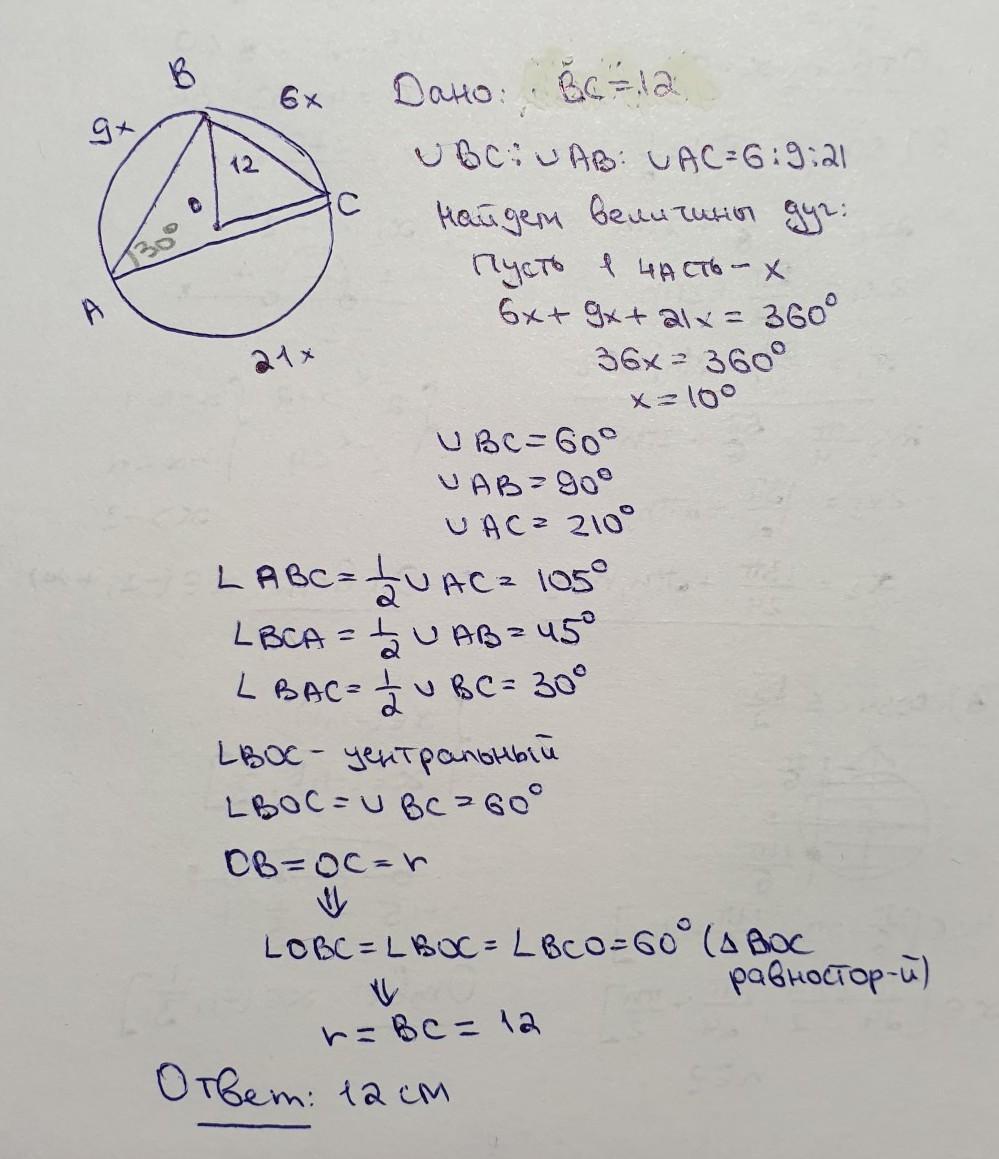 B
6x
9x
12
C
O
30°
A
21x
Дано: BC = 12
∪BC : ∪AB : ∪AC = 6 : 9 : 21
Найдем величины дуг:
Пусть 1 часть – x
6x + 9x + 21x = 360°
36x = 360°
x = 10°
∪BC = 60°
∪AB = 90°
∪AC = 210°
∠ABC = 1/2 ∪AC = 105°
∠BCA = 1/2 ∪AB = 45°
∠BAC = 1/2 ∪BC = 30°
∠BOC – центральный
∠BOC = ∪BC = 60°
OB = OC = r
⇓
∠OBC = ∠BOC = ∠BCO = 60° (△BOC
равностор-й)
⇓
r = BC = 12
Ответ: 12 см